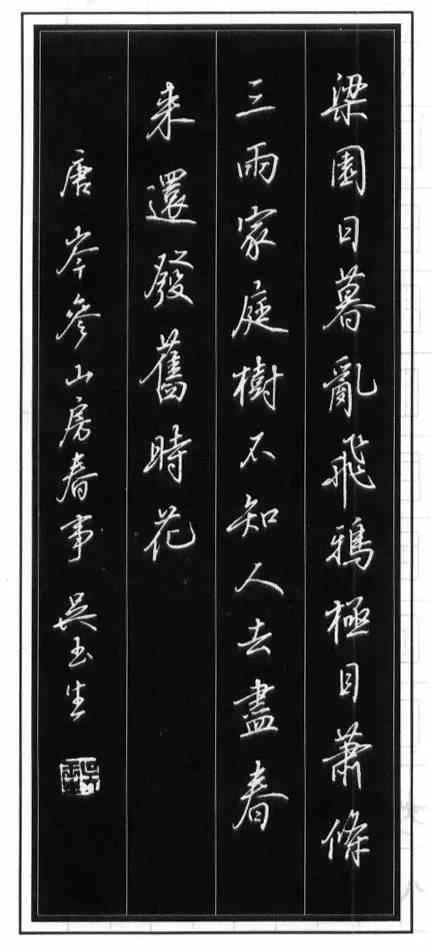 梁園日暮亂飛鴉極目蕭條
三雨家庭樹不知人去盡春
来還發舊時花
唐岑參山房春事 吴玉生